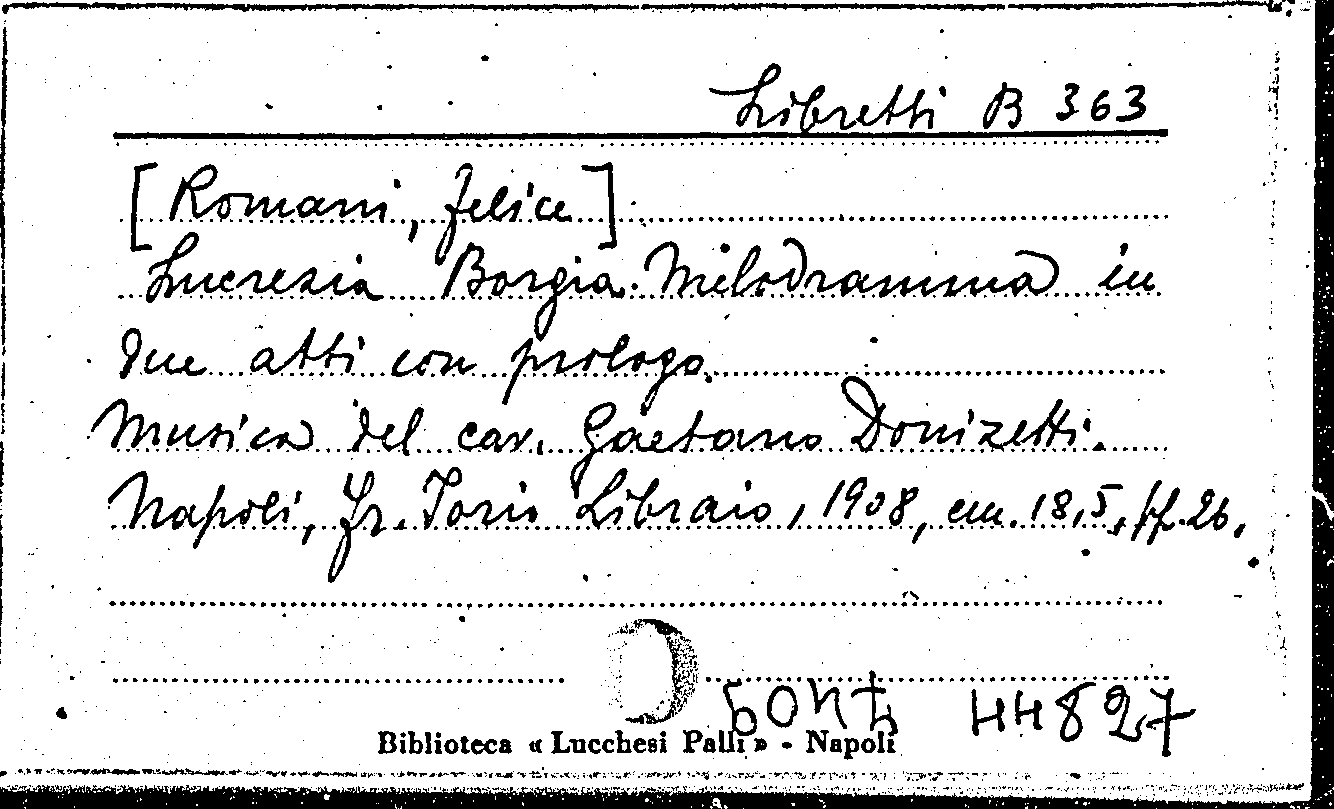 Libretti B 363
[Romani, Felice]
Lucrezia Borgia. Melodramma in
due atti con prologo.
Musica del cav. Gaetano Donizetti.
Napoli, Fr. Iorio Libraio, 1908, cm. 18,5, pp. 26.
44827
Biblioteca « Lucchesi Palli » - Napoli